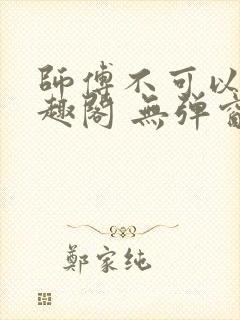 師傅不可以
趣閣 無彈窗
鄭家純